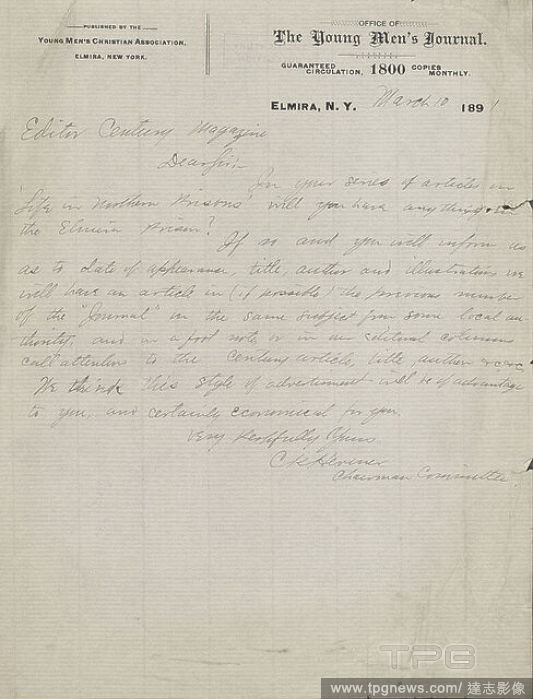 PUBLISHED BY THE
YOUNG MEN'S CHRISTIAN ASSOCIATION,
ELMIRA, NEW YORK.
OFFICE OF
The Young Men's Journal.
GUARANTEED CIRCULATION, 1800 COPIES MONTHLY.
ELMIRA, N. Y. March 10 1891
Editor Century Magazine
Dear Sir:-
In your series of articles on
'Life in Northern Prisons' will you have anything on
the Elmira Prison?
If so and you will inform us
as to date of appearance, title, author and illustrations we
will have an article in (if possible) the previous number
of the "Journal" on the same subject from some local au-
thority, and in a foot note or in our editorial columns
call attention to the Century article, title, author &c &c
We think this style of advertisment will be of advantage
to you, and certainly economical for you.
Very Respfully Yours
C K Hevener
Chairman Committee.
TPG
www.tpgnews.com/達志影像